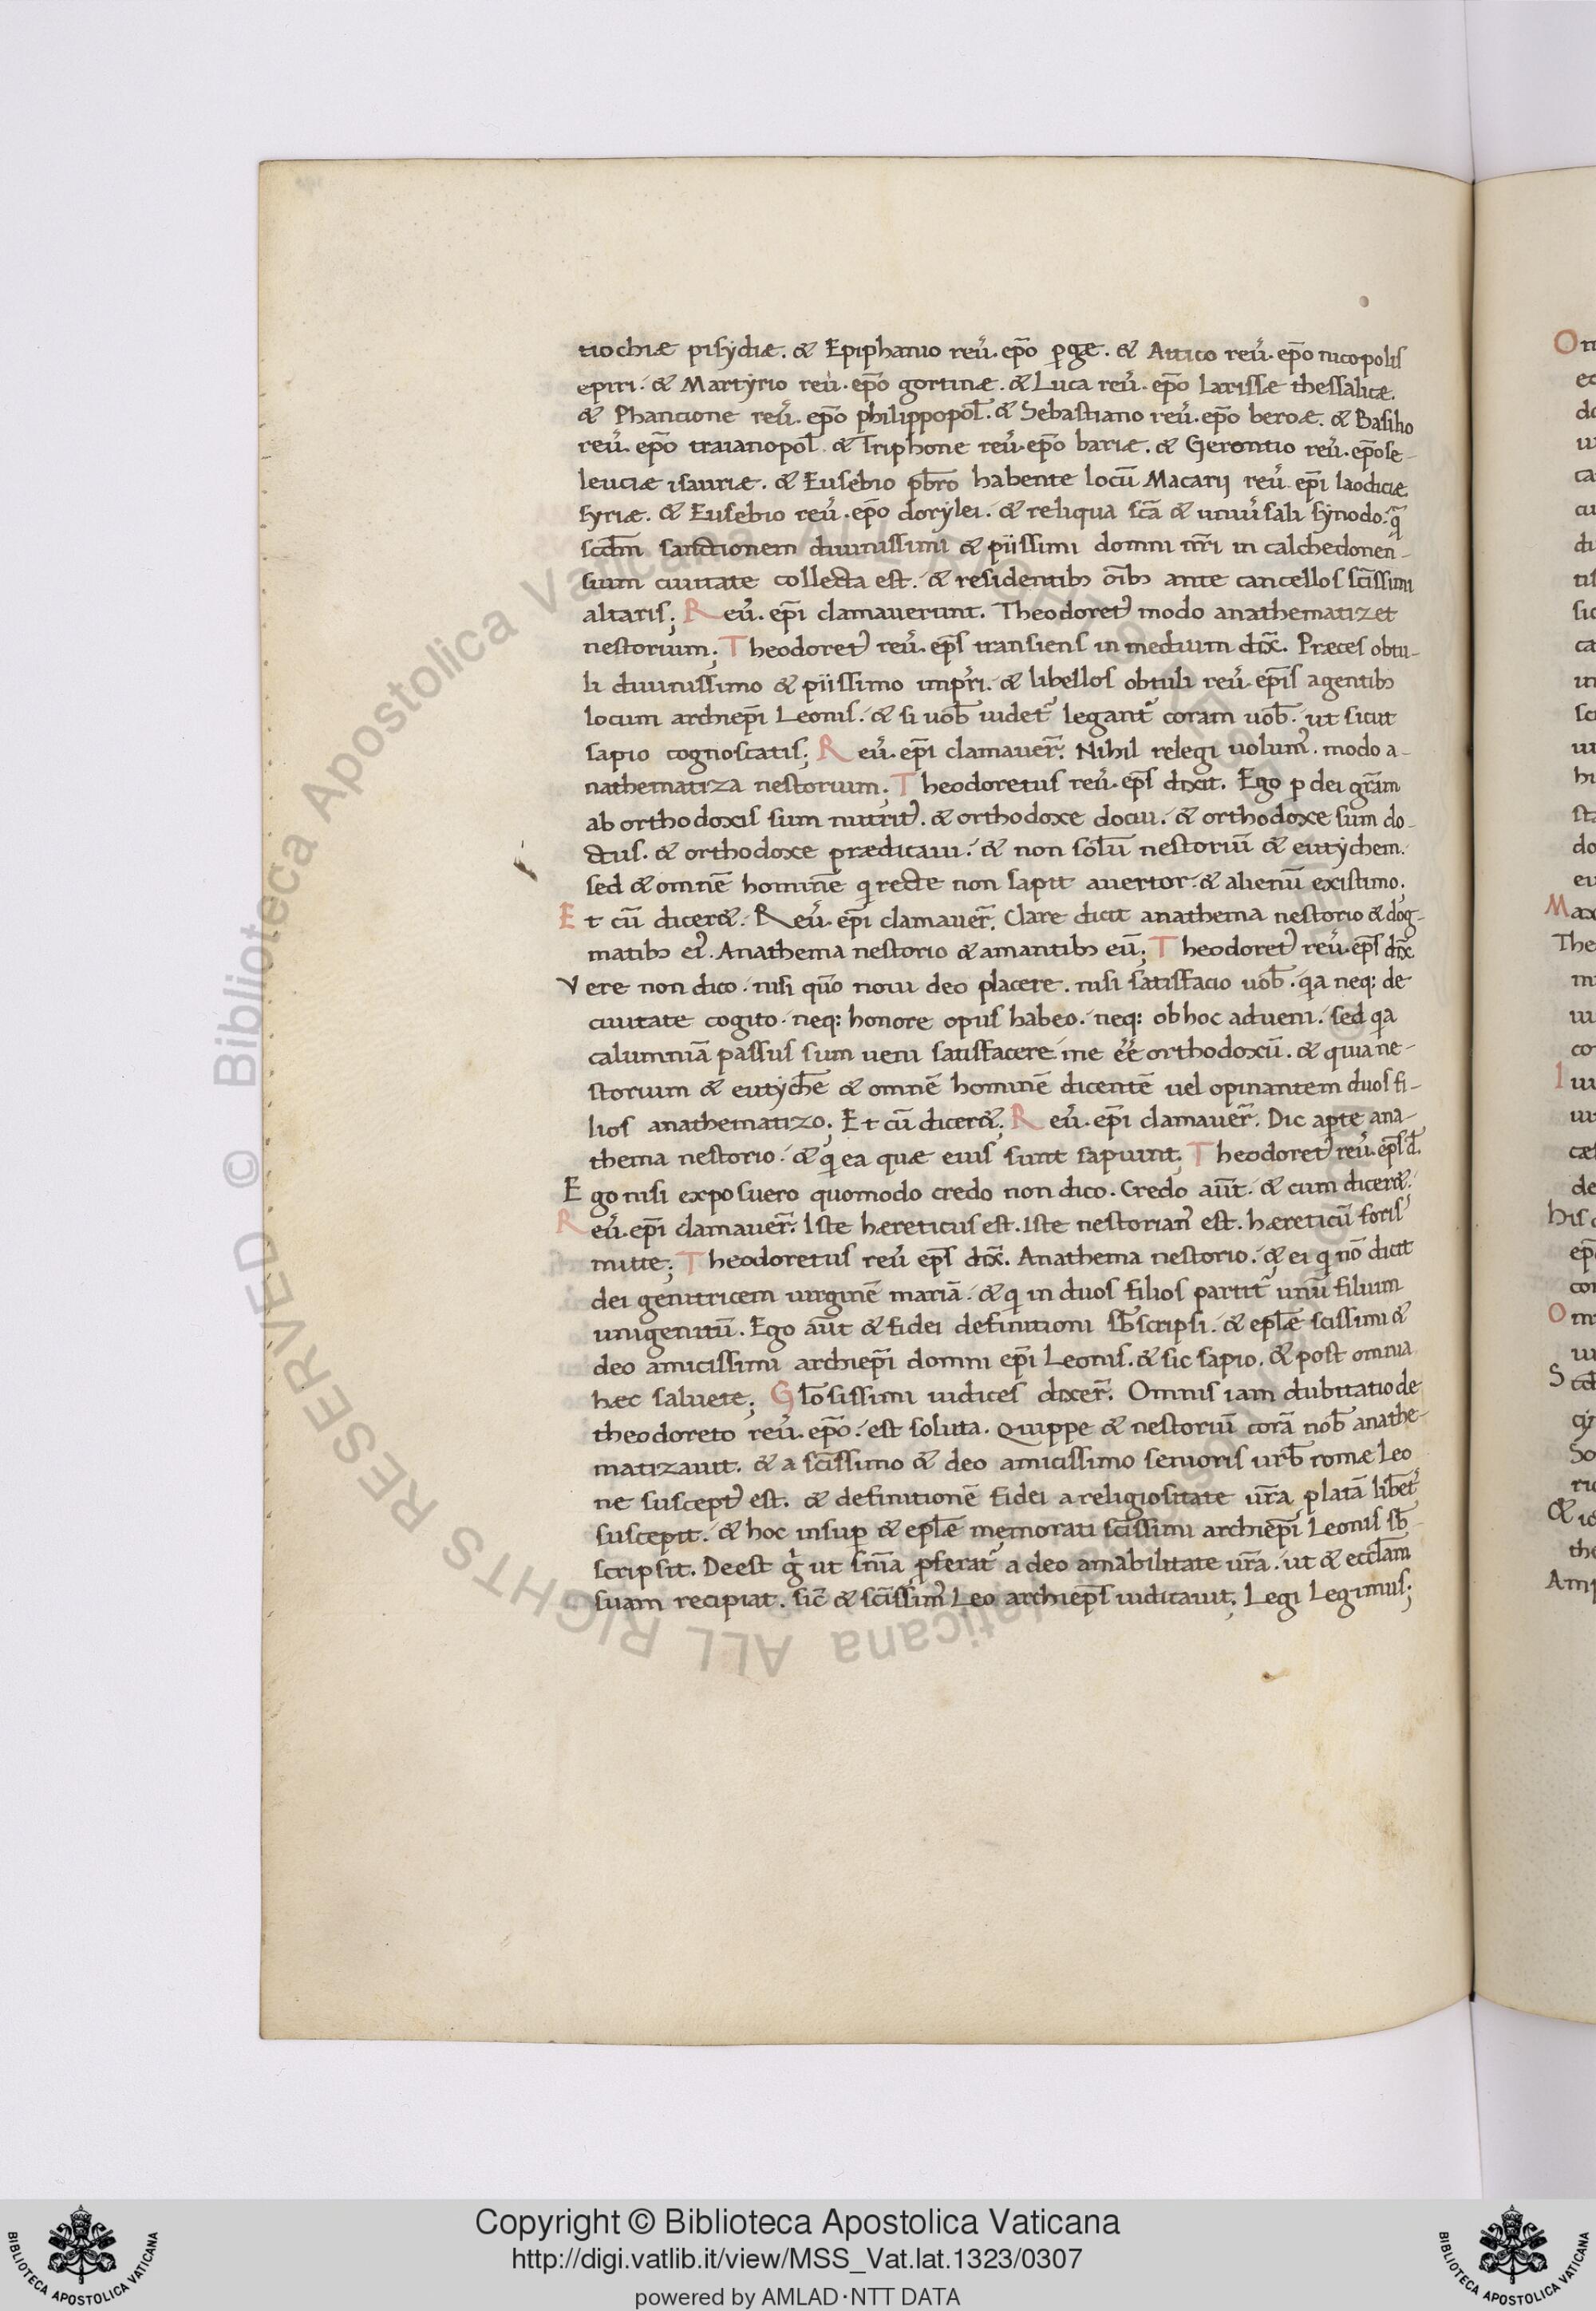 tiochiæ pisydiæ. & Epiphanio reu̓. ep̅o ꝑgę. & Attico reu̓. ep̅o nicopolis
epiri. & Martyrio reu̓. ep̅o gortinæ. & Luca reu̓. ep̅o Larissæ thessalicæ.
& Phancione reu̓. ep̅o philippopol̅. & Sebastiano reu̓. ep̅o beroæ. & Basilio
reu̓. ep̅o traianopol̅. & Triphone reu̓. ep̅o bariæ. & Gerontio reu̓. ep̅o se-
leuciæ isauriæ. & Eusebio pb̅ro habente locu̅ Macarij reu̓. ep̅i laodiciæ
syriæ. & Eusebio reu̓. ep̅o dorylei. & reliqua sc̅a & uniu̓sali synodo. q̅
scd̅m sanctionem diuinissimi & piissimi domni nr̅i in calchedonen-
sium ciuitate collecta est. & residentibꝫ oi̅bꝫ ante cancellos sc̅issimi
altaris; Reu̓. ep̅i clamauerunt. Theodoretꝰ modo anathematizet
nestorium; Theodoretꝰ reu̓. ep̅s transiens in medium dix̅. Præces obtu-
li diuinissimo & piissimo imp̅ri. & libellos obtuli reu̓. ep̅is agentibꝫ
locum archiep̅i Leonis. & si uob̅ uidet᷑ legant᷑ coram uob̅. ut sicut
sapio cognoscatis; Reu̓. ep̅i clamauer̅. Nihil relegi uolumꝰ. modo a-
nathematiza nestorium; Theodoretus reu̓. ep̅s dixit. Ego ꝑ dei gr̅am
ab orthodoxis sum nutritꝰ. & orthodoxe docui. & orthodoxe sum do-
ctus. & orthodoxe prædicaui. & non solu̅ nestoriu̅ & eutychem.
sed & omne̅ homine̅ q recte non sapit auertor. & alienu̅ existimo;
Et cu̅ dicer&. Reu̓. ep̅i clamauer̅. Clare dicit anathema nestorio & dog-
matibꝫ eiꝰ. Anathema nestorio & amantibꝫ eu̅; Theodoretꝰ reu̓. ep̅s dix̅
Vere non dico. nisi quo̅ noui deo placere. nisi satisfacio uob̅. qa neq: de
ciuitate cogito. neq: honore opus habeo. neq: ob hoc adueni. sed qa
calumnia̅ passus sum ueni satisfacere me e̓e̓ orthodoxu̅. & quia ne-
storium & eutyche̅ & omne̅ homine̅ dicente̅ uel opinantem duos fi-
lios anathematizo; Et cu̅ dicer&; Reu̓. ep̅i clamauer̅. Dic apte ana-
thema nestorio. & q ea quæ eius sunt sapiunt; Theodoretꝰ reu̓. ep̅s d̅.
Ego nisi exposuero quomodo credo non dico. Credo au̅t. & cum dicer&.
Reu̓. ep̅i clamauer̅. Iste hæreticus est. Iste nestorianꝰ est. hæreticu̅ foris
mitte; Theodoretus reu̓. ep̅s dix̅. Anathema nestorio. & ei q no̅ dicit
dei genitricem uirgine̅ maria̅. & q in duos filios partit᷑ unu̅ filium
unigenitu̅. Ego au̅t & fidei definitioni sb̅scripsi. & epl̅æ sc̅issimi &
deo amicissimi archiep̅i domni ep̅i Leonis. & sic sapio. & post omnia
hæc saluete; Glo̅sissimi iudices dixer̅. Omnis iam dubitatio de
theodoreto reu̓. ep̅o. est soluta. Quippe & nestoriu̅ cora̅ nob̅ anathe-
matizauit. & a sc̅issimo & deo amicissimo senioris urb̅ romæ Leo
ne susceptꝰ est. & definitione̅ fidei a religiositate ur̅a ꝓlata̅ libet᷑
suscepit. & hoc insuꝑ & epl̅æ memorati sc̅issimi archiep̅i Leonis sb̅
scripsit. Deest g̓ ut sn̅ia ꝓferat᷑ a deo amabilitate ur̅a. ut & eccl̅am
suam recipiat. sic̅ & sc̅issimꝰ Leo archiep̅s iudicauit; Legi Legimus;
© Biblioteca Apostolica Vaticana ALL RIGHTS RESERVED
Copyright © Biblioteca Apostolica Vaticana
http://digi.vatlib.it/view/MSS_Vat.lat.1323/0307
powered by AMLAD·NTT DATA
BIBLIOTECA APOSTOLICA VATICANA
BIBLIOTECA APOSTOLICA VATICANA